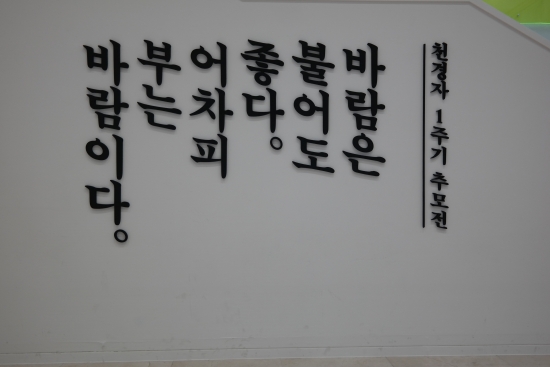 천경자 1주기 추모전
바람은
불어도
좋다。
어차피
부는
바람이다。